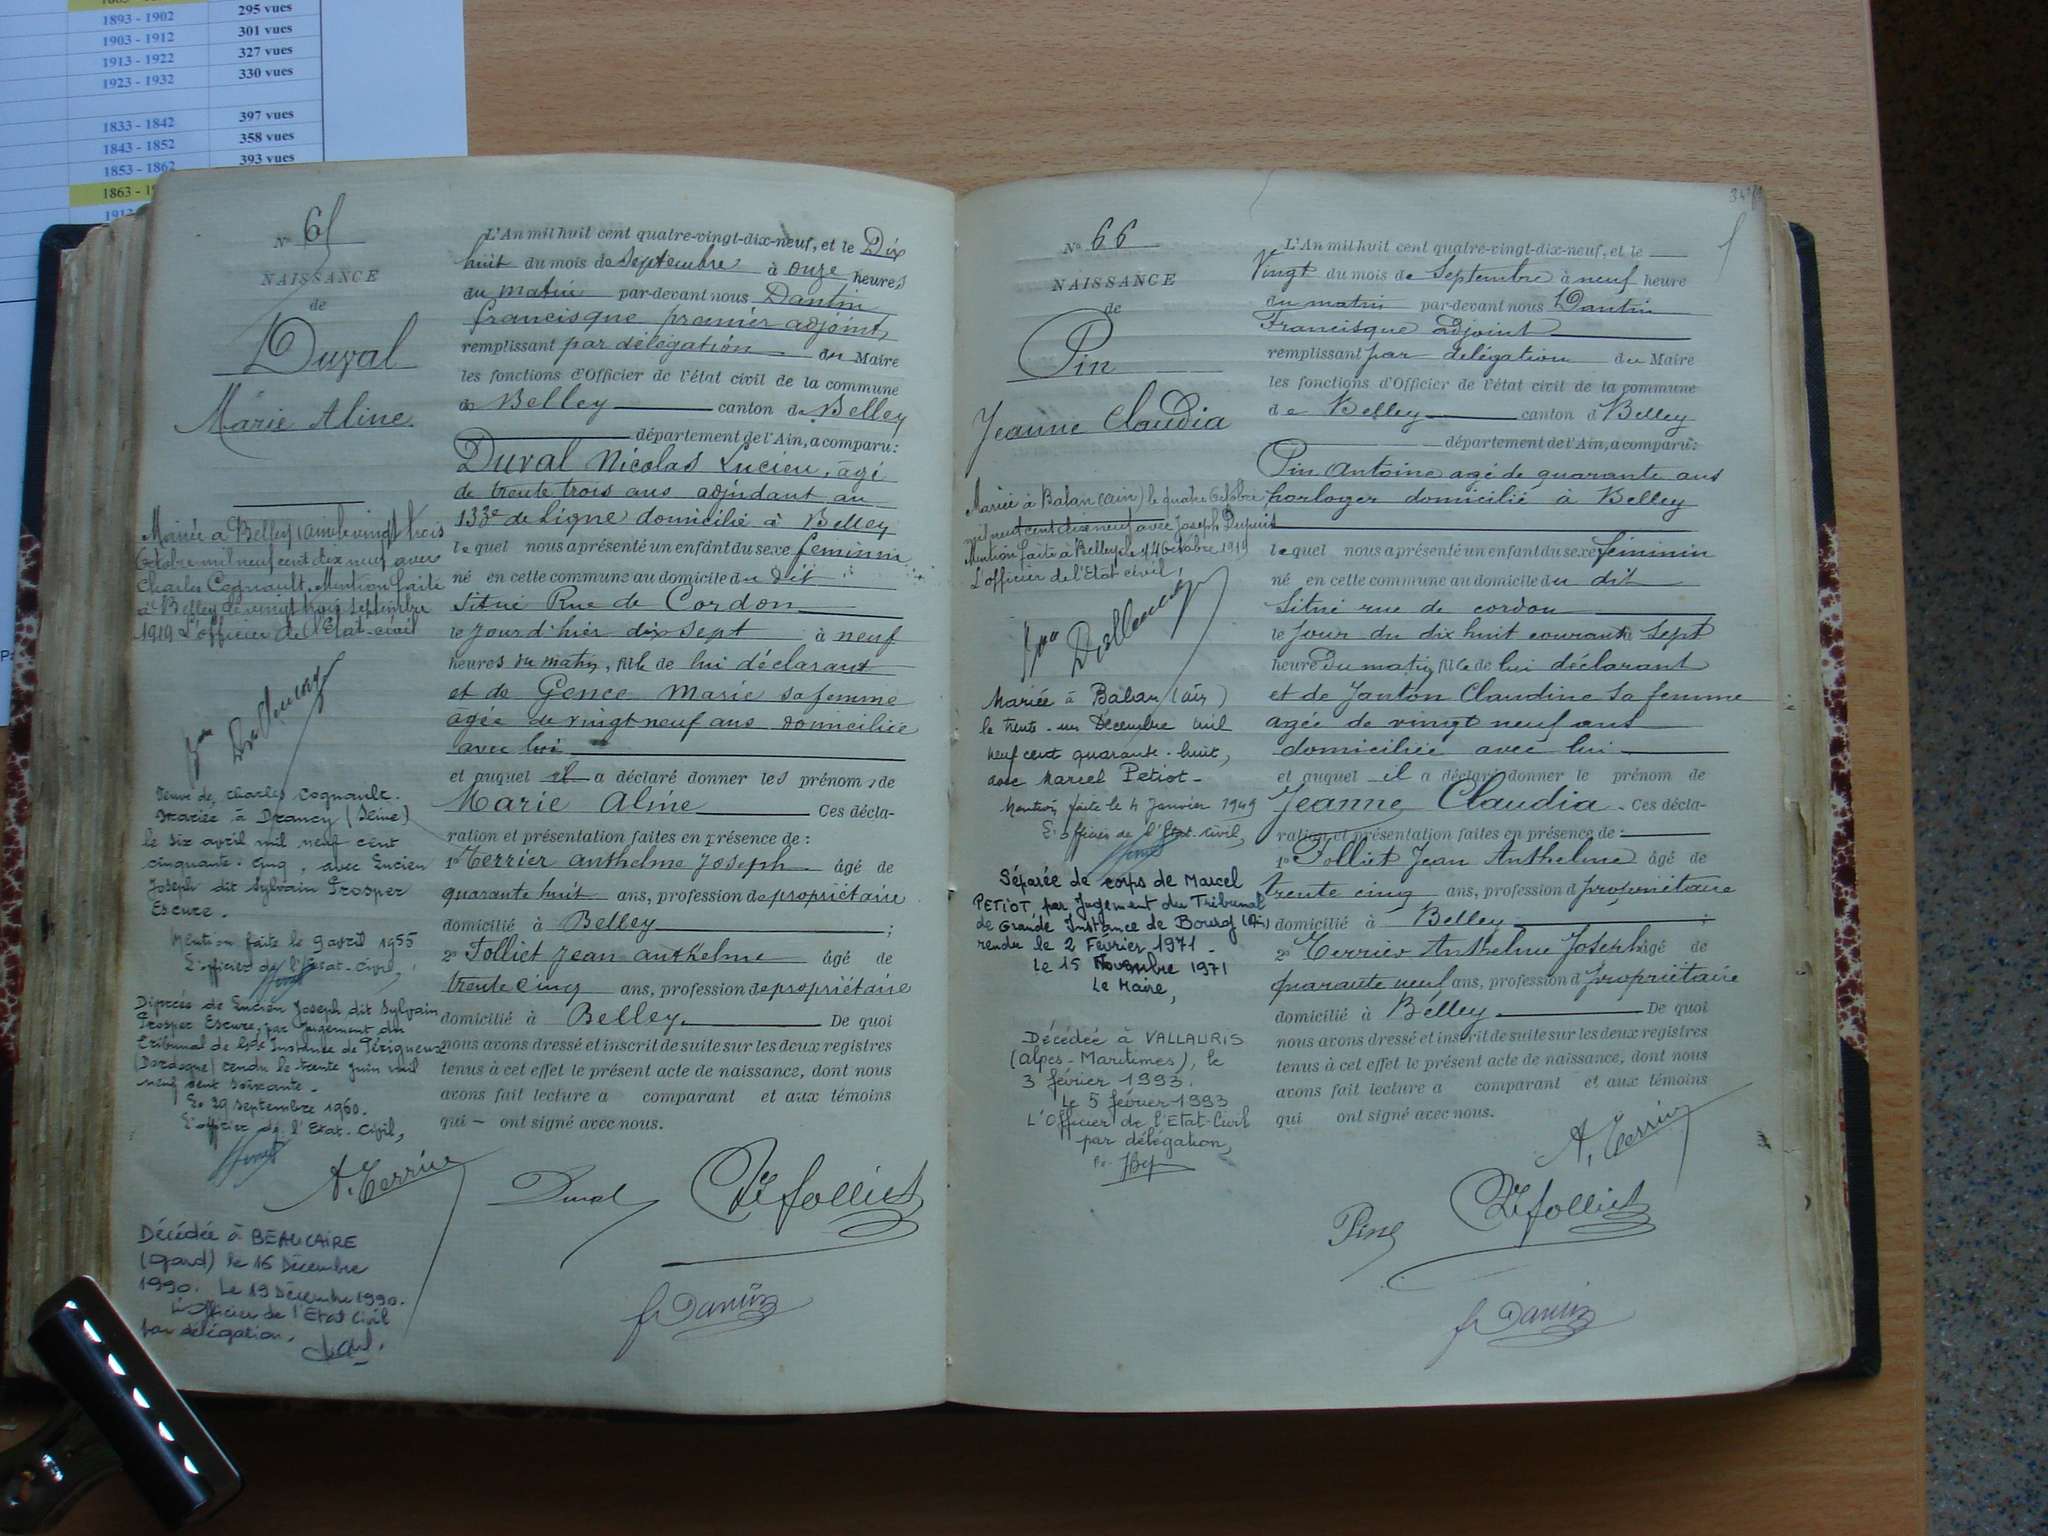 1893 - 1902 295 vues
1903 - 1912 301 vues
1913 - 1922 327 vues
1923 - 1932 330 vues
1833 - 1842 397 vues
1843 - 1852 358 vues
1853 - 1862 393 vues
1863 - 1
N° 65
NAISSANCE
de
Duval
Marie Aline.
Mariée à Belley (Ain) le vingt trois
Octobre mil neuf cent dix neuf avec
Charles Cognault. Mention faite
à Belley le vingt trois septembre
1919 L'officier de l'Etat-civil
Veuve de Charles Cognault.
Mariée à Drancy (Seine)
le six avril mil neuf cent
cinquante-cinq, avec Lucien
Joseph dit Sylvain Prosper
Escure.
Mention faite le 9 avril 1955
L'officier de l'Etat-Civil,
Divorcée de Lucien Joseph dit Sylvain
Prosper Escure, par Jugement du
tribunal de Gde Instance de Périgueux
(Dordogne) rendu le trente juin mil
neuf cent soixante.
Le 29 septembre 1960.
L'officier de l'Etat-Civil,
Décédée à BEAUCAIRE
(Gard) le 16 Décembre
1990. Le 19 Décembre 1990.
L'Officier de l'Etat Civil
par délégation,
L'An mil huit cent quatre-vingt-dix-neuf, et le Dix
huit du mois de Septembre à onze heures
du matin par-devant nous Dantin
francisque premier adjoint,
remplissant par délégation du Maire
les fonctions d'Officier de l'état civil de la commune
de Belley canton de Belley
département de l'Ain, a comparu:
Duval Nicolas Lucien, âgé
de trente trois ans adjudant au
133e de Ligne domicilié à Belley
lequel nous a présenté un enfant du sexe féminin
né en cette commune au domicile du dit
Situé Rue de Cordon
le jour d'hier dix sept à neuf
heures du matin, fille de lui déclarant
et de Gence Marie sa femme
âgée de vingt neuf ans domiciliée
avec lui
et auquel il a déclaré donner les prénoms de
Marie Aline Ces décla-
ration et présentation faites en présence de :
1° Terrier Anthelme Joseph âgé de
quarante huit ans, profession de propriétaire
domicilié à Belley ;
2° Folliet Jean Anthelme âgé de
trente cinq ans, profession de propriétaire
domicilié à Belley De quoi
nous avons dressé et inscrit de suite sur les deux registres
tenus à cet effet le présent acte de naissance, dont nous
avons fait lecture a comparant et aux témoins
qui – ont signé avec nous.
A. Terrier Duval Folliet
f Dantin
N° 66
NAISSANCE
de
Pin
Jeanne Claudia
Mariée à Balan (Ain) le quatre Octobre
mil neuf cent dix neuf avec Joseph Dupuis
Mention faite à Belley le 14 Octobre 1919
L'officier de l'Etat civil,
Mariée à Balan (Ain)
le trente-un Décembre mil
neuf cent quarante-huit,
avec Marcel Petiot-
Mention faite le 4 Janvier 1949
L'officier de l'Etat-Civil,
Séparée de corps de Marcel
PETIOT, par Jugement du Tribunal
de Grande Instance de Bourg (Ain)
rendu le 2 Février 1971.
Le 15 Novembre 1971
Le Maire,
Décédée à VALLAURIS
(Alpes-Maritimes), le
3 février 1993.
Le 5 février 1993
L'Officier de l'Etat-Civil
par délégation,
L'An mil huit cent quatre-vingt-dix-neuf, et le
Vingt du mois de Septembre à neuf heure
du matin par-devant nous Dantin
Francisque adjoint
remplissant par délégation du Maire
les fonctions d'Officier de l'état civil de la commune
de Belley canton d Belley
département de l'Ain, a comparu:
Pin Antoine agé de quarante ans
horloger domicilié à Belley
lequel nous a présenté un enfant du sexe féminin
né en cette commune au domicile du dit
Situé rue de cordon
le jour du dix huit courant à sept
heure du matin, fille de lui déclarant
et de Janton Claudine sa femme
agée de vingt neuf ans
domiciliée avec lui
et auquel il a déclaré donner le prénom de
Jeanne Claudia. Ces décla-
ration et présentation faites en présence de :
1° Folliet Jean Anthelme âgé de
trente cinq ans, profession d propriétaire
domicilié à Belley ;
2° Terrier Anthelme Joseph âgé de
quarante neuf ans, profession d propriétaire
domicilié à Belley De quoi
nous avons dressé et inscrit de suite sur les deux registres
tenus à cet effet le présent acte de naissance, dont nous
avons fait lecture a comparant et aux témoins
qui ont signé avec nous.
A. Terrier
Pin Folliet
f Dantin